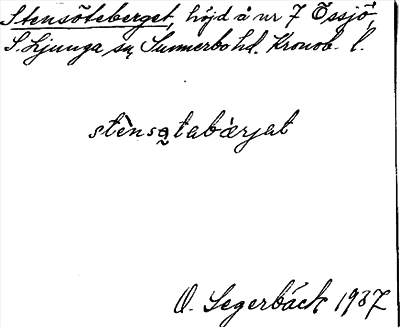 Stensöteberget, höjd å nr 7 Össjö,
S. Ljunga sn Sunnerbo hd. Kronob. l.
stènsə̣tabàrjat
O. Segerbäck 1937